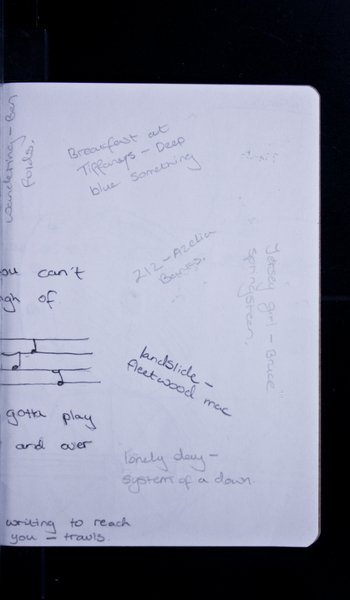 wandering - Ben
folds.
Breakfast at
Tiffaneys - Deep
blue something
212 - Azelia
Banks.
Jersey girl - Bruce
springsteen.
ou can't
gh of
landslide -
fleetwood mac
gotta play
and over
lonely day -
system of a down.
writing to reach
you - travis.